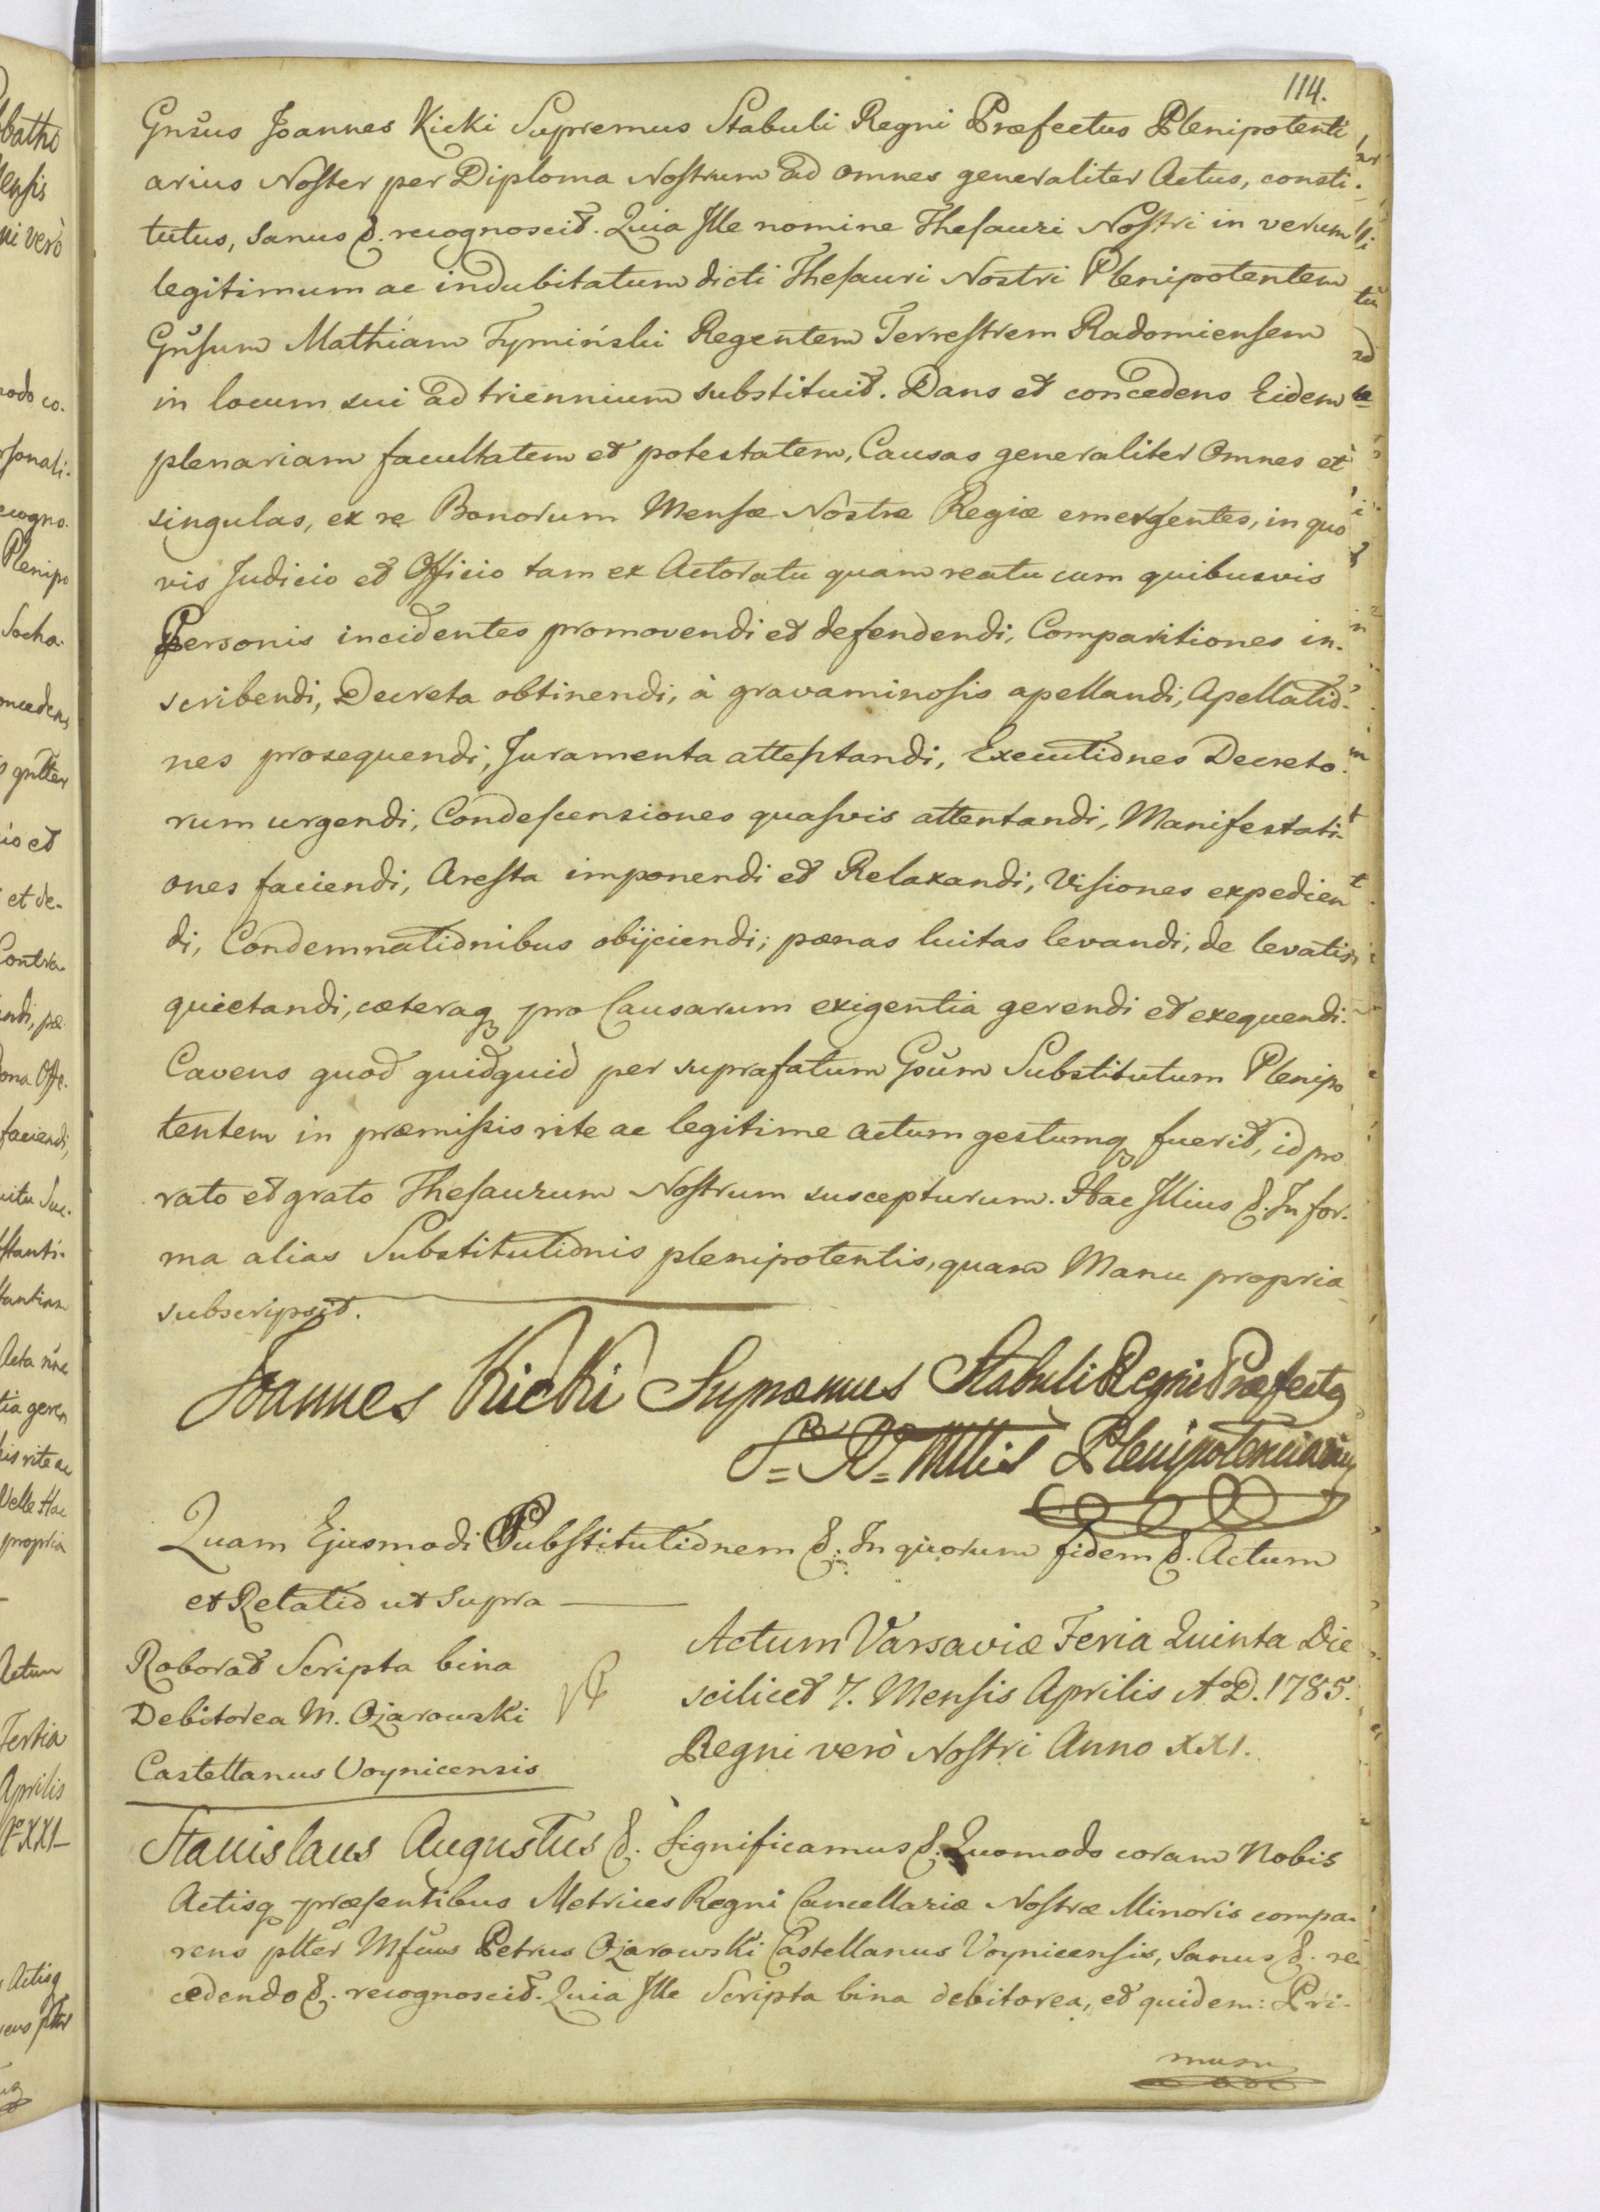 114.
Gnsus Joannes Kicki Supremus Stabuli Regni Præfectus Plenipotenti
arius Noster per Diploma Nostrum ad omnes generaliter Actus, consti.
tutus, sanus &. recognoscit. Quia Ille nomine Thesauri Nostri in verum
legitimum ac indubitatum dicti Thesauri Nostri Plenipotentem
Gnsum Mathiam Tymiński Regentem Terrestrem Radomiensem
in locum sui ad triennium substituit. Dans et concedens Eidem
plenariam facultatem et potestatem, Causas generaliter Omnes et
singulas, ex re Bonorum Mensæ Nostræ Regiæ emergentes, in quo
vis Judicio et Officio tam ex Actoratu quam reatu cum quibusvis
Personis incidentes promovendi et defendendi, Comparitiones in.
scribendi, Decreta obtinendi, à gravaminosis apellandi, Apellatio.
nes prosequendi, Juramenta attestandi, Executiones Decreto.
rum urgendi, Condescensiones quasvis attentandi, Manifestati.
ones faciendi, Aresta imponendi et Relaxandi, Visiones expedien
di, Condemnationibus obijciendi, pænas luitas levandi, de levatis
quietandi, cæteraq pro Causarum exigentia gerendi et exequendi.
Cavens quod quidquid per suprafatum Gsum Substitutum Plenipo
tentem in præmissis rite ac legitime actum gestumq fuerit, id pro
rato et grato Thesaurum Nostrum suscepturum. Hac Illius &. In for.
ma alias Substitutionis plenipotentis, quam Manu propria
subscripsit.
Joannes Kicki Supremus Stabuli Regni Præfectq
S= R= Mttis Plenipotenciarius
Quam Ejusmodi Substitutionem &. In quorum fidem &. Actum
et Relatio ut supra
Roborat Scripta bina
Debitorea M. Ożarowski
Castellanus Voynicensis
Actum Varsaviæ Feria Quinta Die
scilicet 7. Mensis Aprilis A.D. 1785.
Regni verò Nostri Anno XXI.
Stanislaus Augustus &. Significamus &. Quomodo coram Nobis
Actisq præsentibus Metrices Regni Cancellariæ Nostræ Minoris compa.
rens pltter Mfcus Petrus Ożarowski Castellanus Voynicensis, sanus &. re
cedendo &. recognoscit. Quia Ille Scripta bina debitorea, et quidem: Pri.
mum